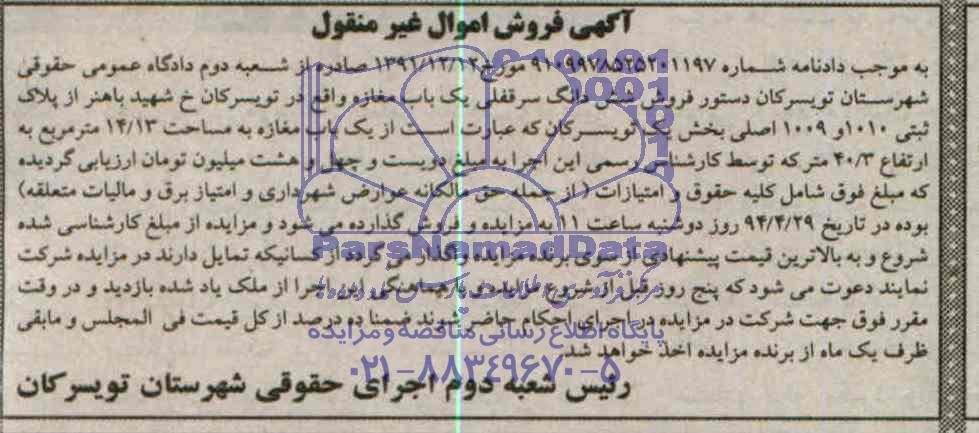 آگهی فروش اموال غیر منقول
به موجب دادنامه شماره ۹۱۰۹۹۷۸۵۲۵۲۰۱۱۹۷ مورخ ۱۳۹۱/۱۲/۱۲ صادره از شعبه دوم دادگاه عمومی حقوقی
شهرستان تویسرکان دستور فروش شش دانگ سرقفلی یک باب مغازه واقع در تویسرکان خ شهید باهنر از پلاک
ثبتی ۱۰۱۰و ۱۰۰۹ اصلی بخش یک تویسرکان که عبارت است از یک باب مغازه به مساحت ۱۴/۱۳ مترمربع به
ارتفاع ۴۰/۳ متر که توسط کارشناس رسمی این اجرا به مبلغ دویست و چهل و هشت میلیون تومان ارزیابی گردیده
که مبلغ فوق شامل کلیه حقوق و امتیازات ( از جمله حق مالکانه عوارض شهرداری و امتیاز برق و مالیات متعلقه)
بوده در تاریخ ۹۴/۴/۲۹ روز دوشنبه ساعت ۱۱ به مزایده و فروش گذارده می شود و مزایده از مبلغ کارشناسی شده
شروع و به بالاترین قیمت پیشنهادی از سوی برنده مزایده واگذار می گردد از کسانیکه تمایل دارند در مزایده شرکت
نمایند دعوت می شود که پنج روز قبل از شروع مزایده و با هماهنگی این اجرا از ملک یاد شده بازدید و در وقت
مقرر فوق جهت شرکت در مزایده در اجرای احکام حاضر شوند ضمنا ده درصد از کل قیمت فی المجلس و مابقی
ظرف یک ماه از برنده مزایده اخذ خواهد شد.
رئیس شعبه دوم اجرای حقوقی شهرستان تویسرکان
ParsNamadData
پایگاه اطلاع رسانی مناقصه و مزایده
۰۲۱-۸۸۳۴۹۶۷۰-۵